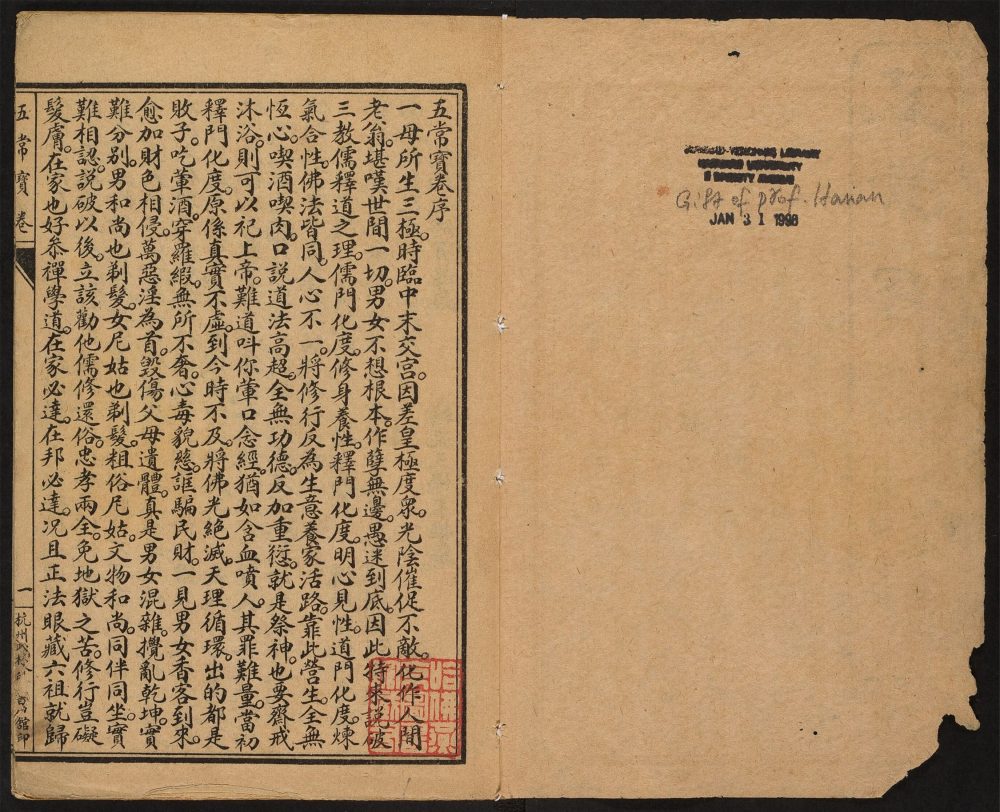 五常寶卷序
一母所生三極時臨中末交宫。因差皇極度衆。光陰催促不敵。化作人間
老翁。堪嘆世間一切。男女不想根本。作孽無邊。愚迷到底。因此特來説破
三教儒釋道之理。儒門化度。修身養性。釋門化度。明心見性。道門化度。煉
氣合性。佛法皆同。人心不一。將修行反為生意。養家活路。靠此營生。全無
恆心。喫酒喫肉。口説道法高超。全無功德。反加重愆。就是祭神。也要齋戒
沐浴。則可以祀上帝。難道叫你葷口念經。猶如含血噴人。其罪難量。當初
釋門化度。原係真實不虛。到今時不及。將佛光絶滅。天理循環。出的都是
敗子。吃葷酒。穿羅緞。無所不奢。心毒貌慈。誆騙民財。一見男女香客到來。
愈加財色相侵。萬惡淫為首。毀傷父母遺體。真是男女混雜。攪亂乾坤。實
難分别。男和尚也剃髮。女尼姑也剃髮。粗俗尼姑。文物和尚。同伴同坐。實
難相認。説破以後。立該勸他儒修還俗。忠孝兩全。免地獄之苦。修行豈礙
髮膚。在家也好叅禪學道。在家必達。在邦必達。况且正法眼藏。六祖就歸
五常寶卷
一
杭州
館印
HARVARD-YENCHING LIBRARY
HARVARD UNIVERSITY
2 DIVINITY AVENUE
Gift of prof. Hanan
JAN 31 1998